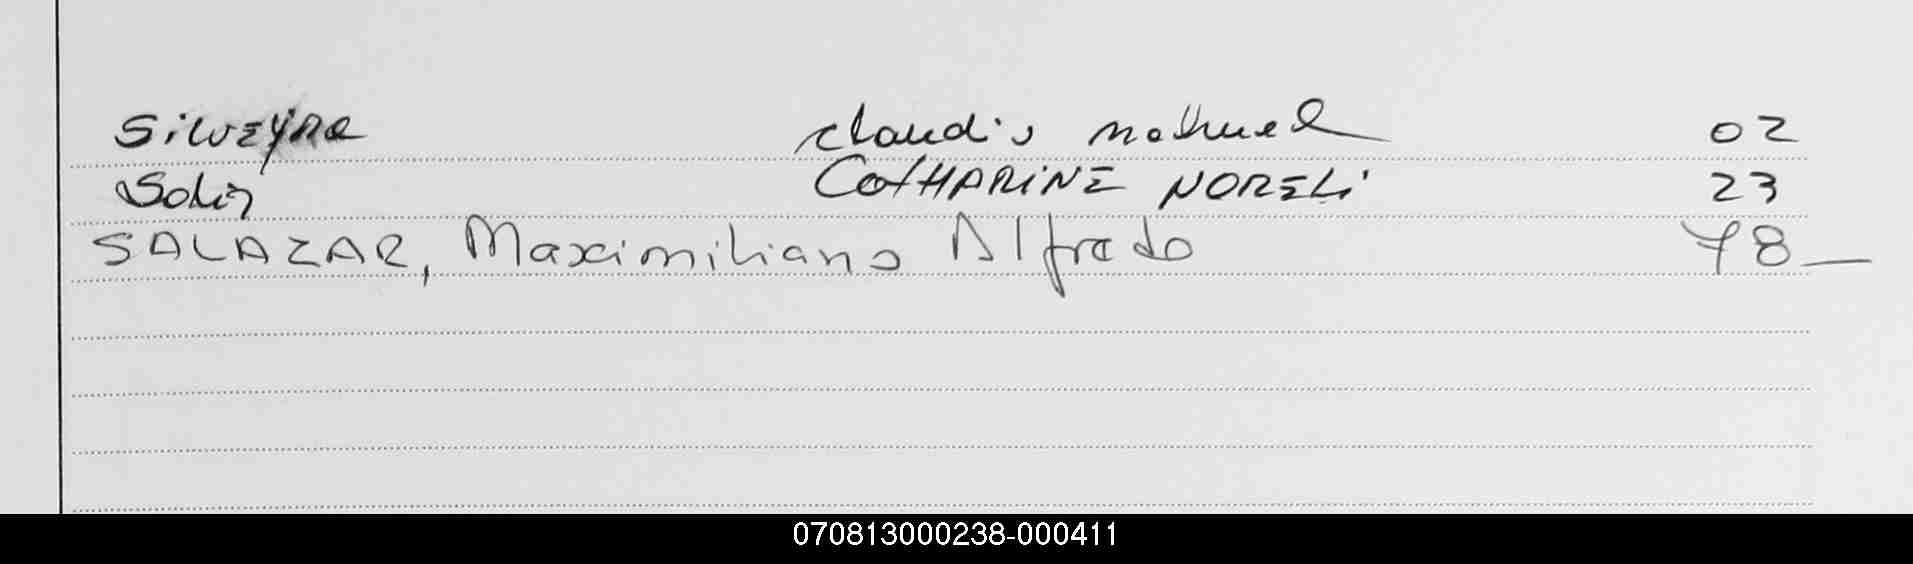 Silveyra Claudio Nahuel 02
Solis CATHARINE NORELI 23
SALAZAR, Maximiliano Alfredo 78
070813000238-000411